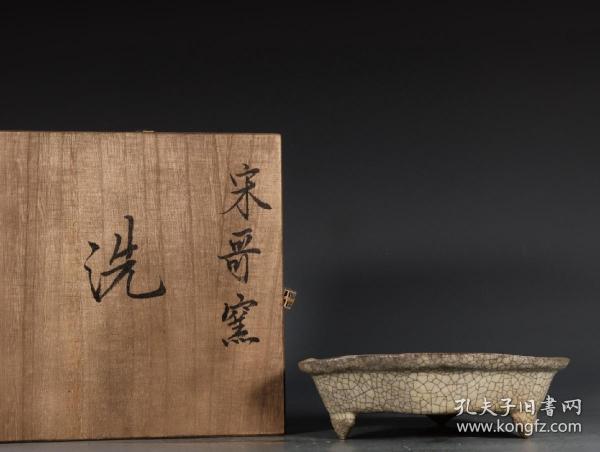 宋哥窑
洗
孔夫子旧書网
www.kongfz.com